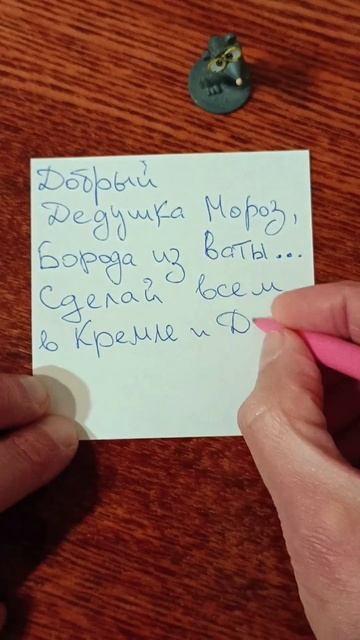 Добрый
Дедушка Мороз,
Борода из ваты...
Сделай всем
в Кремле и Д